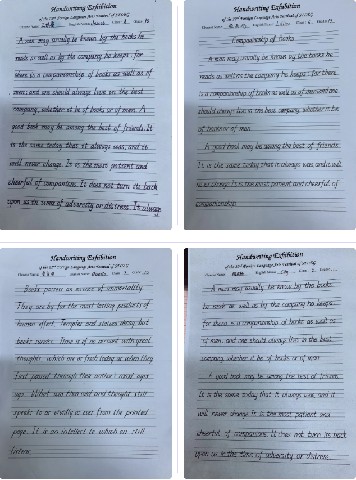 Handwriting Exhibition
A man may usually be known by the books he
reads as well as by the company he keeps; for
there is a companionship of books as well as of
men; and one should always live in the best
company, whether it be of books or of men. A
good book may be among the best of friends. It
is the same today that it always was, and it
will never change. It is the most patient and
cheerful of companions. It does not turn its back
upon us in times of adversity or distress. It always
Handwriting Exhibition
Companionship of Books
A man may usually be known by the books he
reads as well as by the company he keeps; for there
is a companionship of books as well as of men; and one
should always live in the best company, whether it be
of books or of men.
A good book may be among the best of friends.
It is the same today that it always was, and it will
never change. It is the most patient and cheerful of
companions.
Handwriting Exhibition
Books possess an essence of immortality.
They are by far the most lasting products of
human effort. Temples and statues decay, but
books survive. Time is of no account with great
thoughts, which are as fresh today as when they
first passed through their author's mind ages
ago. What was then said and thought still
speaks to us as vividly as ever from the printed
page.
Handwriting Exhibition
A man may usually be known by the books
he reads as well as by the company he keeps;
for there is a companionship of books as well as
of men; and one should always live in the best
company, whether it be of books or of men.
A good book may be among the best of friends.
It is the same today that it always was, and it
will never change. It is the most patient and
cheerful of companions. It does not turn its back
upon us in times of adversity or distress.